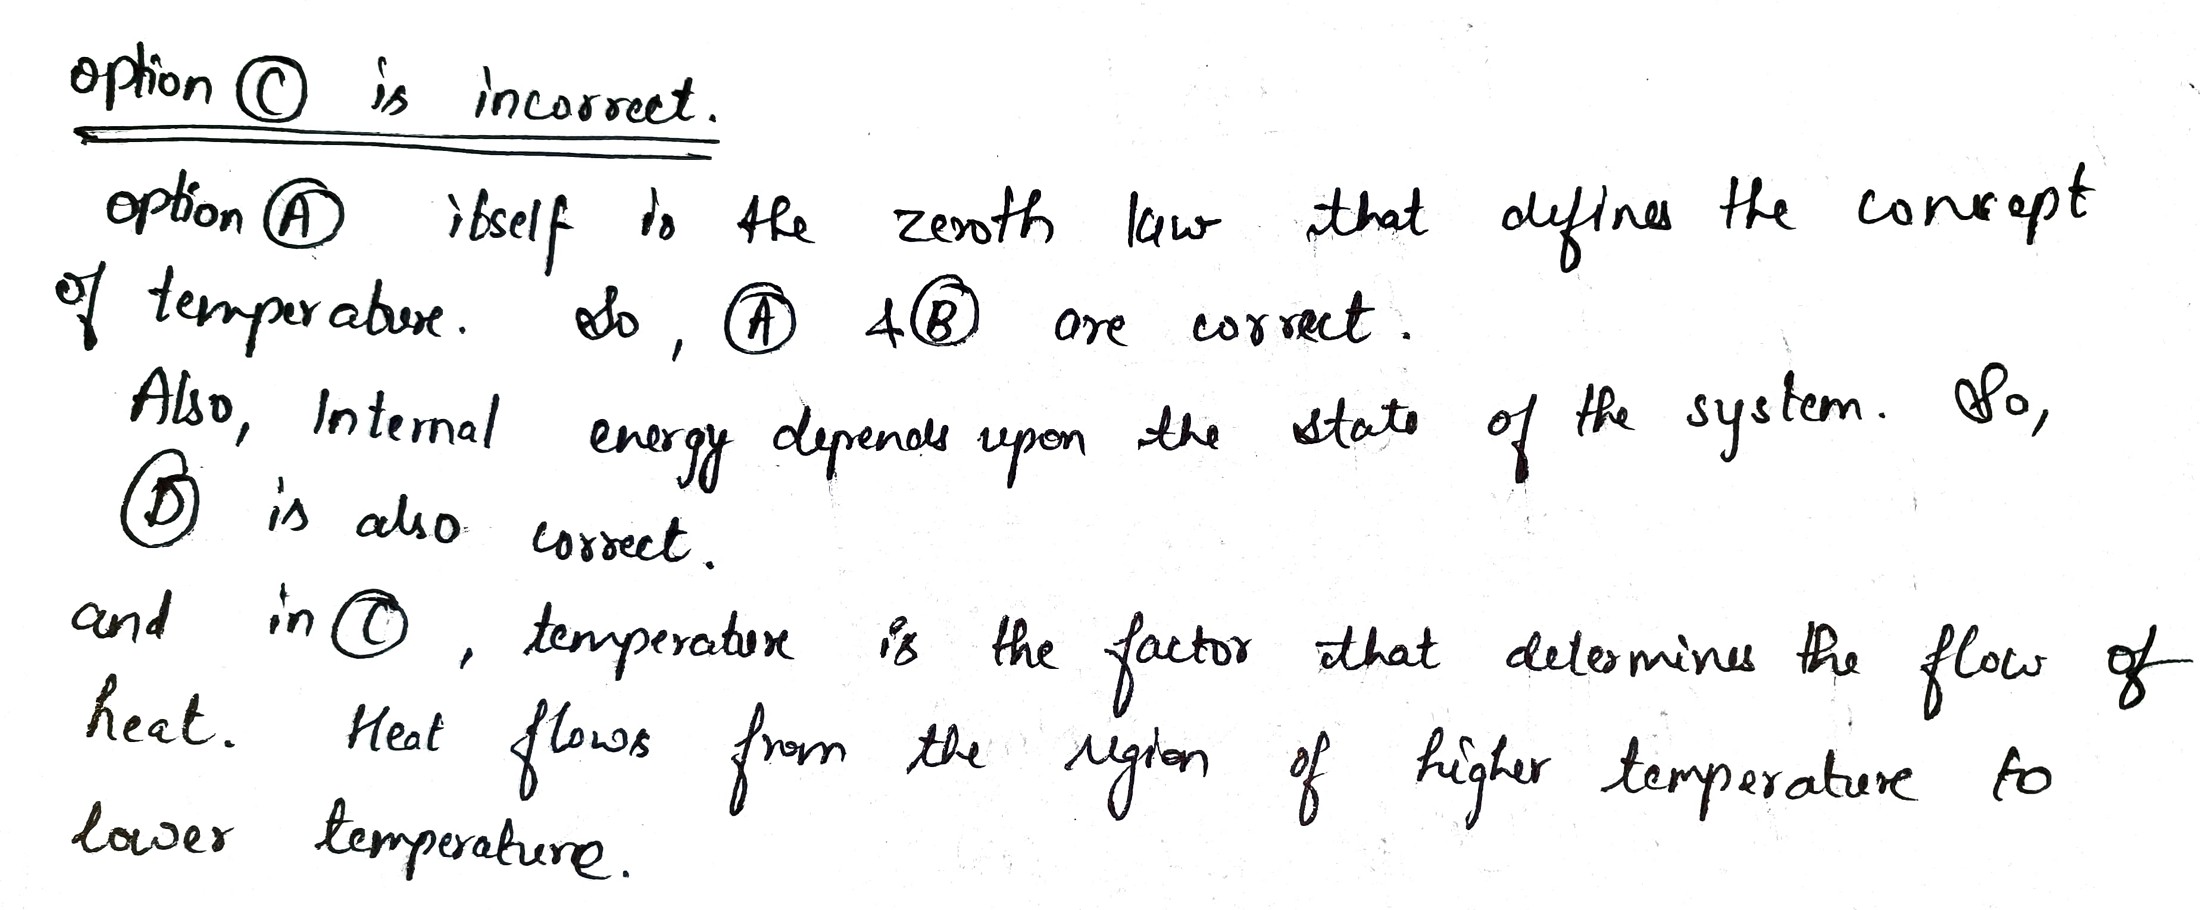 option Ⓒ is incorrect.
option Ⓐ itself is the zeroth law that defines the concept
of temperature. So, Ⓐ & Ⓑ are correct.
Also, Internal energy depends upon the state of the system. So,
Ⓓ is also correct.
and in Ⓒ, temperature is the factor that determines the flow of
heat. Heat flows from the region of higher temperature to
lower temperature.